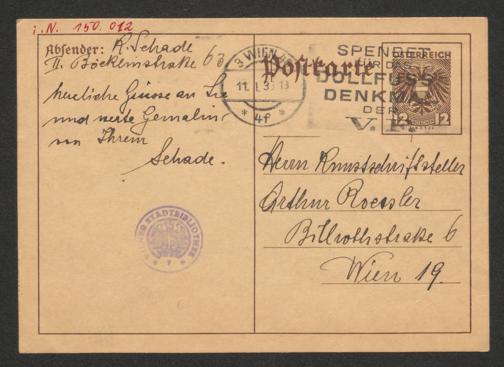 i. N. 150.012
Absender: R. Schade
II. Böcklinstraße 63
herzliche Grüsse an Sie
und werte Gemalin
von Ihrem
Schade.
Postkarte
3 WIEN
11. I. 35 13
* 4f *
SPENDET
FÜR DAS
DOLLFUSS
DENKMAL
DER
V. F.
ÖSTERREICH
12 12
STADTBIBLIOTHEK
Herrn Kunstschriftsteller
Arthur Roessler
Billrothstraße 6
Wien 19.